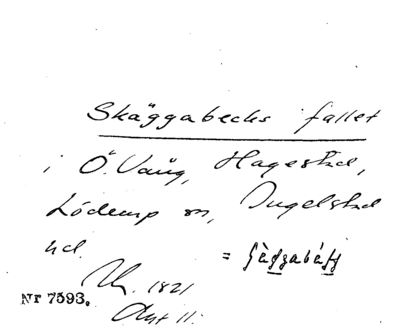 Skäggabecks fallet
i Ö. Vång, Hagestad,
Löderup sn, Ingelstad
hd.
=
Uk. 1821
Nr 7593.
Akt 11.